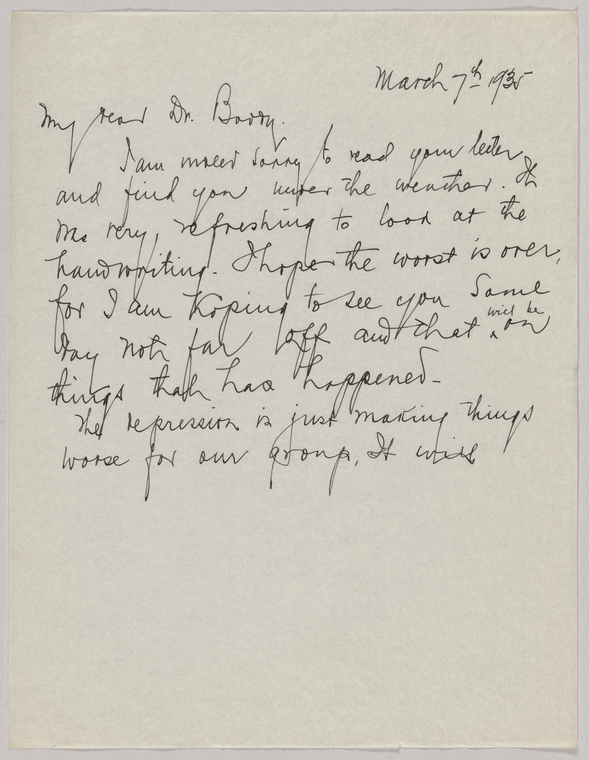 March 7th 1935
My dear Dr. Barry.
I am indeed sorry to read your letter
and find you under the weather. It
was very, refreshing to look at the
handwriting. I hope the worst is over,
for I am hoping to see you some
day not far off and that will be
things that has happened-
The depression is just making things
worse for our group, It will